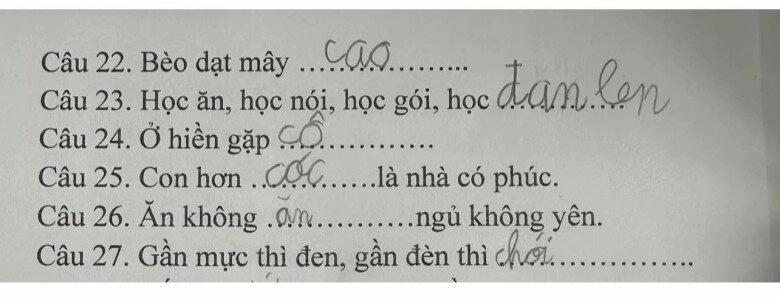 Câu 22. Bèo dạt mây cao
Câu 23. Học ăn, học nói, học gói, học đan len
Câu 24. Ở hiền gặp cô
Câu 25. Con hơn cóc là nhà có phúc.
Câu 26. Ăn không ăn ngủ không yên.
Câu 27. Gần mực thì đen, gần đèn thì chói